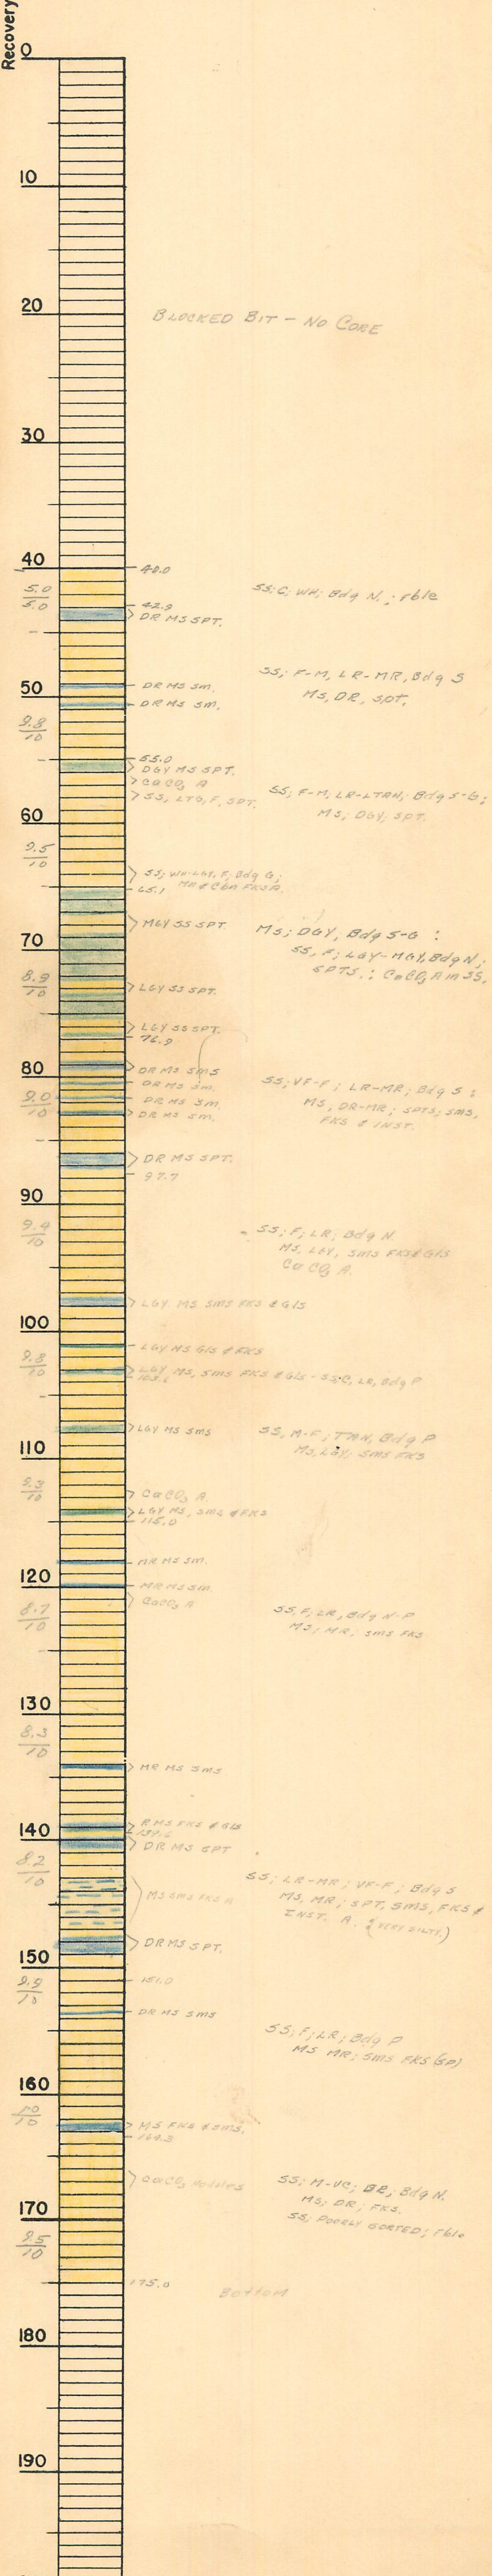 Recovery
0
10
20
BLOCKED BIT - NO CORE
30
40
40.0
5.0
5.0
SS; C; WH; Bdg N.; rble
42.9
DR MS SPT.
SS; F-M, LR-MR, Bdg S
MS, DR, SPT.
DR MS sm.
50
DR MS sm.
9.8
10
55.0
DGY MS SPT.
CaCO3 A
SS, LTG, F. SPT.
SS; F-M, LR-LTAN; Bdg S-G;
MS; DGY; SPT.
60
9.5
10
SS; WH-LGY, F; Bdg G;
MR & Cbn FKS A.
65.1
MGY SS SPT.
MS; DGY, Bdg S-G :
SS, F; LGY-MGY, Bdg N;
SPTS.; CaCO3 A in SS.
70
8.9
10
LGY SS SPT.
LGY SS SPT.
76.9
80
DR MS SMS
DR MS sm.
DR MS sm.
DR MS sm.
9.0
10
SS; VF-F; LR-MR; Bdg S;
MS, DR-MR; SPTS; SMS,
FKS & INST.
DR MS SPT.
87.7
90
9.4
10
SS; F; LR; Bdg N
MS, LGY, SMS FKS & Gls
CaCO3 A.
LGY MS SMS FKS & Gls
100
LGY MS Gls & FKS
9.8
10
LGY MS, SMS FKS & Gls - SS, C, LR, Bdg P
LGY MS SMS
SS, M-F; TAN, Bdg P
MS, LGY; SMS FKS
110
9.3
10
CaCO3 A
LGY MS, SMS & FKS
115.0
MR MS sm.
120
MR MS sm.
CaCO3 A
8.7
10
SS, F; LR, Bdg N-P
MS; MR; SMS FKS
130
8.3
10
MR MS SMS
140
RMS FKS & Gls
DR MS SPT
8.2
10
MS SMS FKS A
SS; LR-MR; VF-F; Bdg S
MS, MR; SPT, SMS, FKS &
INST. A. & (VERY SILTY.)
DR MS SPT.
150
9.9
10
151.0
DR MS SMS
SS; F; LR; Bdg P
MS MR; SMS FKS (SP)
160
10
10
MS FKS & SMS.
164.3
CaCO3 Nodules
SS; M-VC; BR; Bdg N.
MS; DR; FKS.
SS; POORLY SORTED; rble
170
9.5
10
175.0
Bottom
180
190